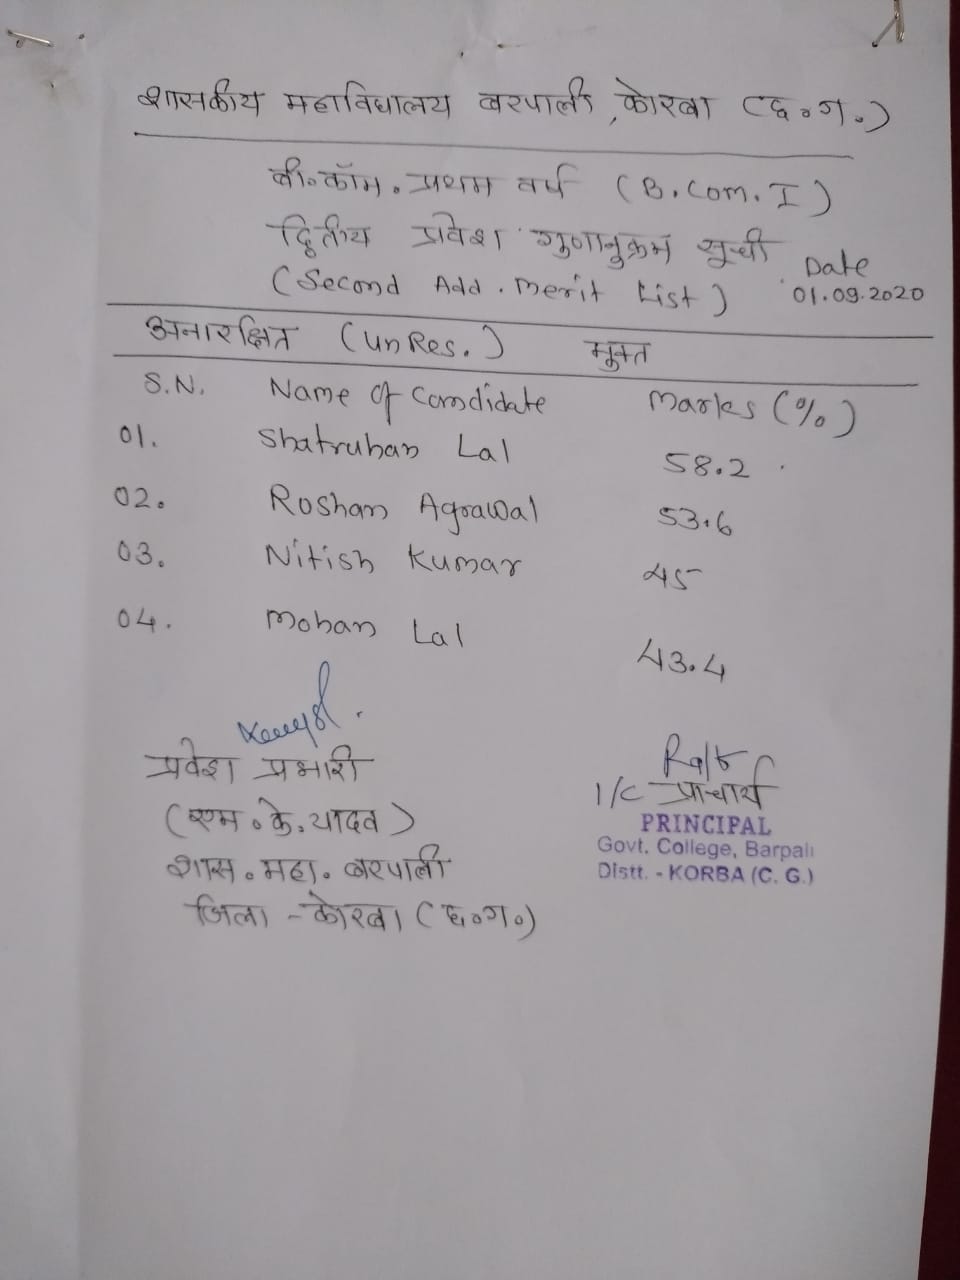 शासकीय महाविद्यालय बरपाली, कोरबा (छ.ग.)
बी.कॉम. प्रथम वर्ष (B.Com. I)
द्वितीय प्रवेश गुणानुक्रम सूची
(Second Add. merit List)
Date
01.09.2020
अनारक्षित (UnRes.) मुक्त
S.N. Name of Candidate Marks (%)
01. Shatruhan Lal 58.2
02. Roshan Agrawal 53.6
03. Nitish Kumar 45
04. Mohan Lal 43.4
प्रवेश प्रभारी
(एम.के. यादव)
शास. महा. बरपाली
जिला - कोरबा (छ.ग.)
I/C प्राचार्य
PRINCIPAL
Govt. College, Barpali
Distt. - KORBA (C. G.)